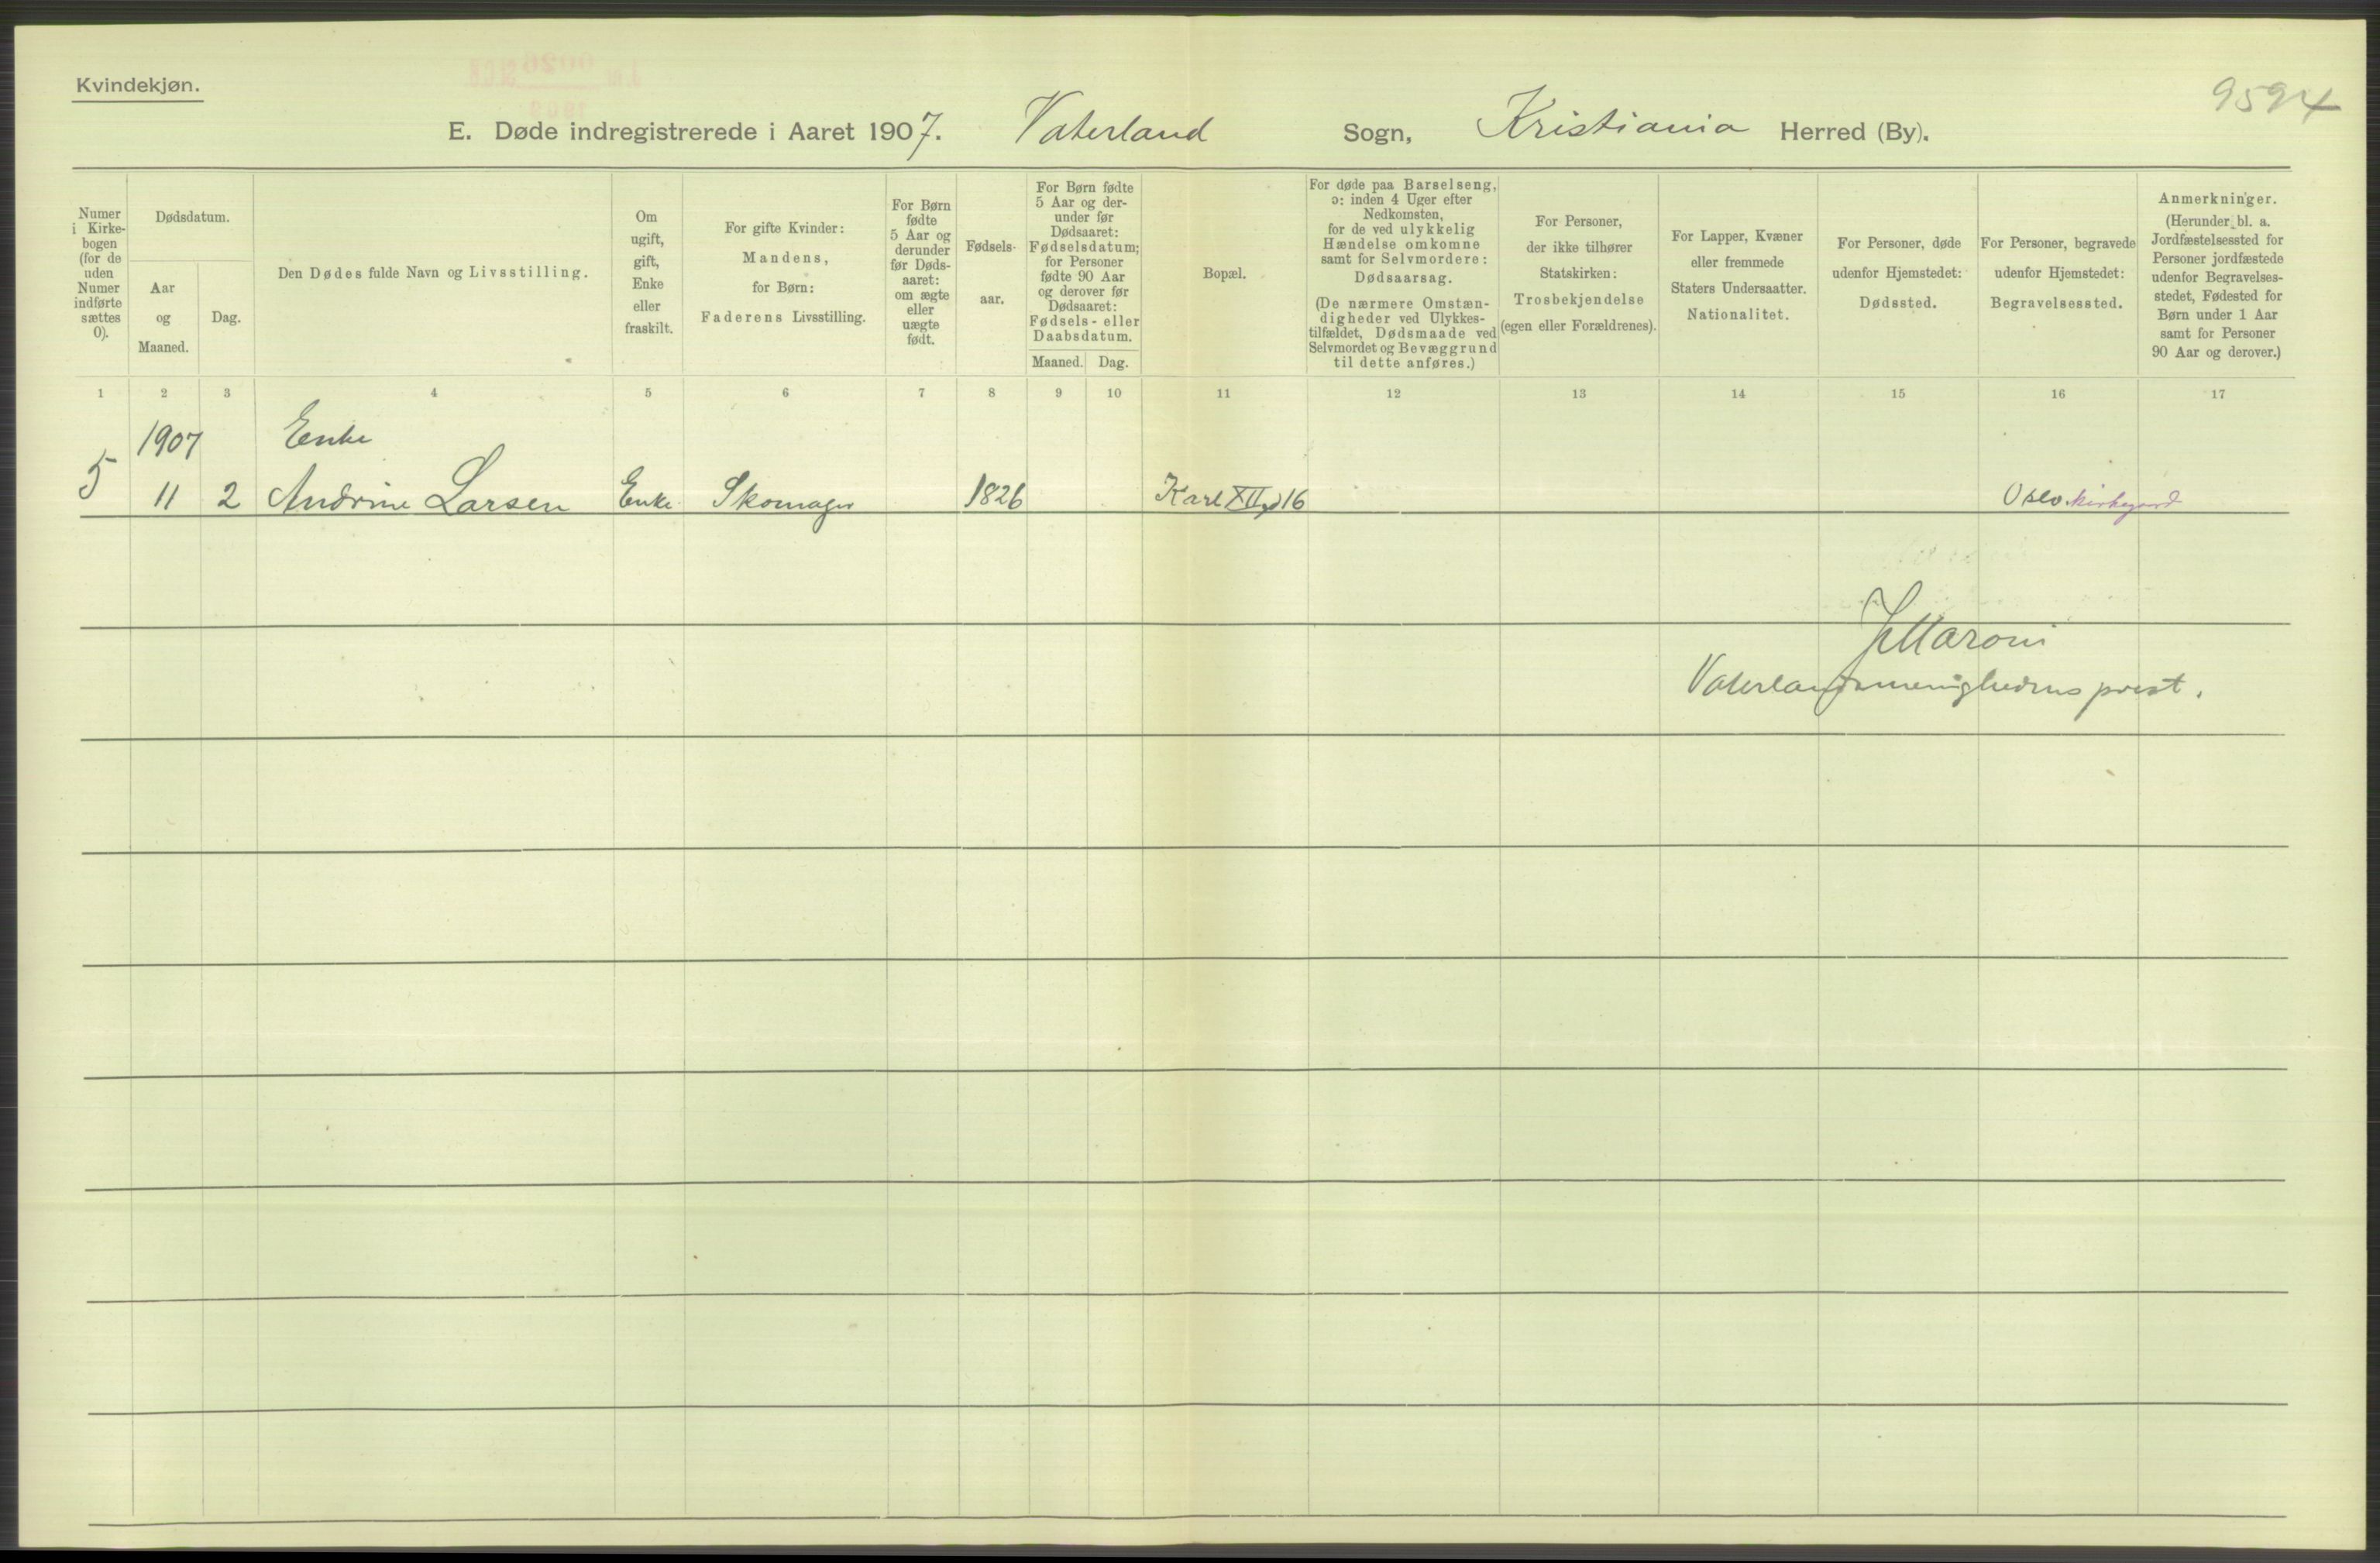 Kvindekjøn.
9594
E. Døde indregistrerede i Aaret 1907. Vaterland Sogn, Kristiania Herred (By).
Numer
i Kirke-
bogen
(for de
uden
Numer
indførte
sættes
0).
Dødsdatum.
Aar
og
Maaned.
Dag.
Den Dødes fulde Navn og Livsstilling.
Om
ugift,
gift,
Enke
eller
fraskilt.
For gifte Kvinder:
Mandens,
for Børn:
Faderens Livsstilling.
For Børn
fødte
5 Aar og
derunder
før Døds-
aaret:
om ægte
eller
uægte
født.
Fødsels-
aar.
For Børn fødte
5 Aar og der-
under før
Dødsaaret:
Fødselsdatum;
for Personer
fødte 90 Aar
og derover før
Dødsaaret:
Fødsels- eller
Daabsdatum.
Maaned. Dag.
Bopæl.
For døde paa Barselseng,
ɔ: inden 4 Uger efter
Nedkomsten,
for de ved ulykkelig
Hændelse omkomne
samt for Selvmordere:
Dødsaarsag.
(De nærmere Omstæn-
digheder ved Ulykkes-
tilfældet, Dødsmaade ved
Selvmordet og Bevæggrund
til dette anføres.)
For Personer,
der ikke tilhører
Statskirken:
Trosbekjendelse
(egen eller Forældrenes).
For Lapper, Kvæner
eller fremmede
Staters Undersaatter.
Nationalitet.
For Personer, døde
udenfor Hjemstedet:
Dødssted.
For Personer, begravede
udenfor Hjemstedet:
Begravelsessted.
Anmerkninger.
(Herunder bl. a.
Jordfæstelsessted for
Personer jordfæstede
udenfor Begravelses-
stedet, Fødested for
Børn under 1 Aar
samt for Personer
90 Aar og derover.)
1 2 3 4 5 6 7 8 9 10 11 12 13 14 15 16 17
1907 Enke
5 11 2 Andrine Larsen Enke Skomager 1826 Karl XIIgd 16 Oslo kirkegaard
Maroni
Vaterlandsmenighedens prest.